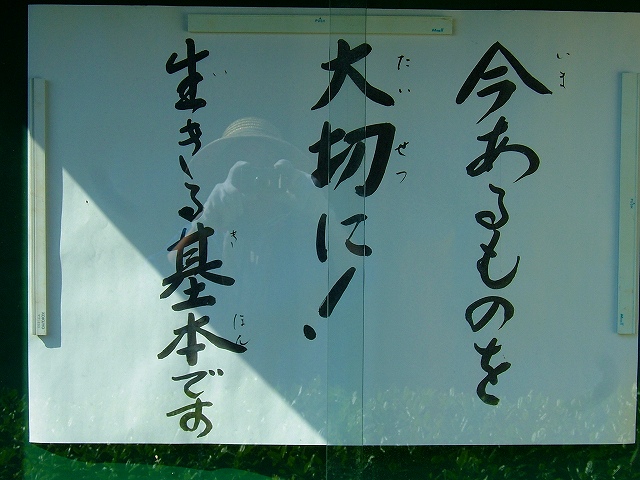 今あるものを
いま
大切に!
たいせつ
生きる基本です
いきほん